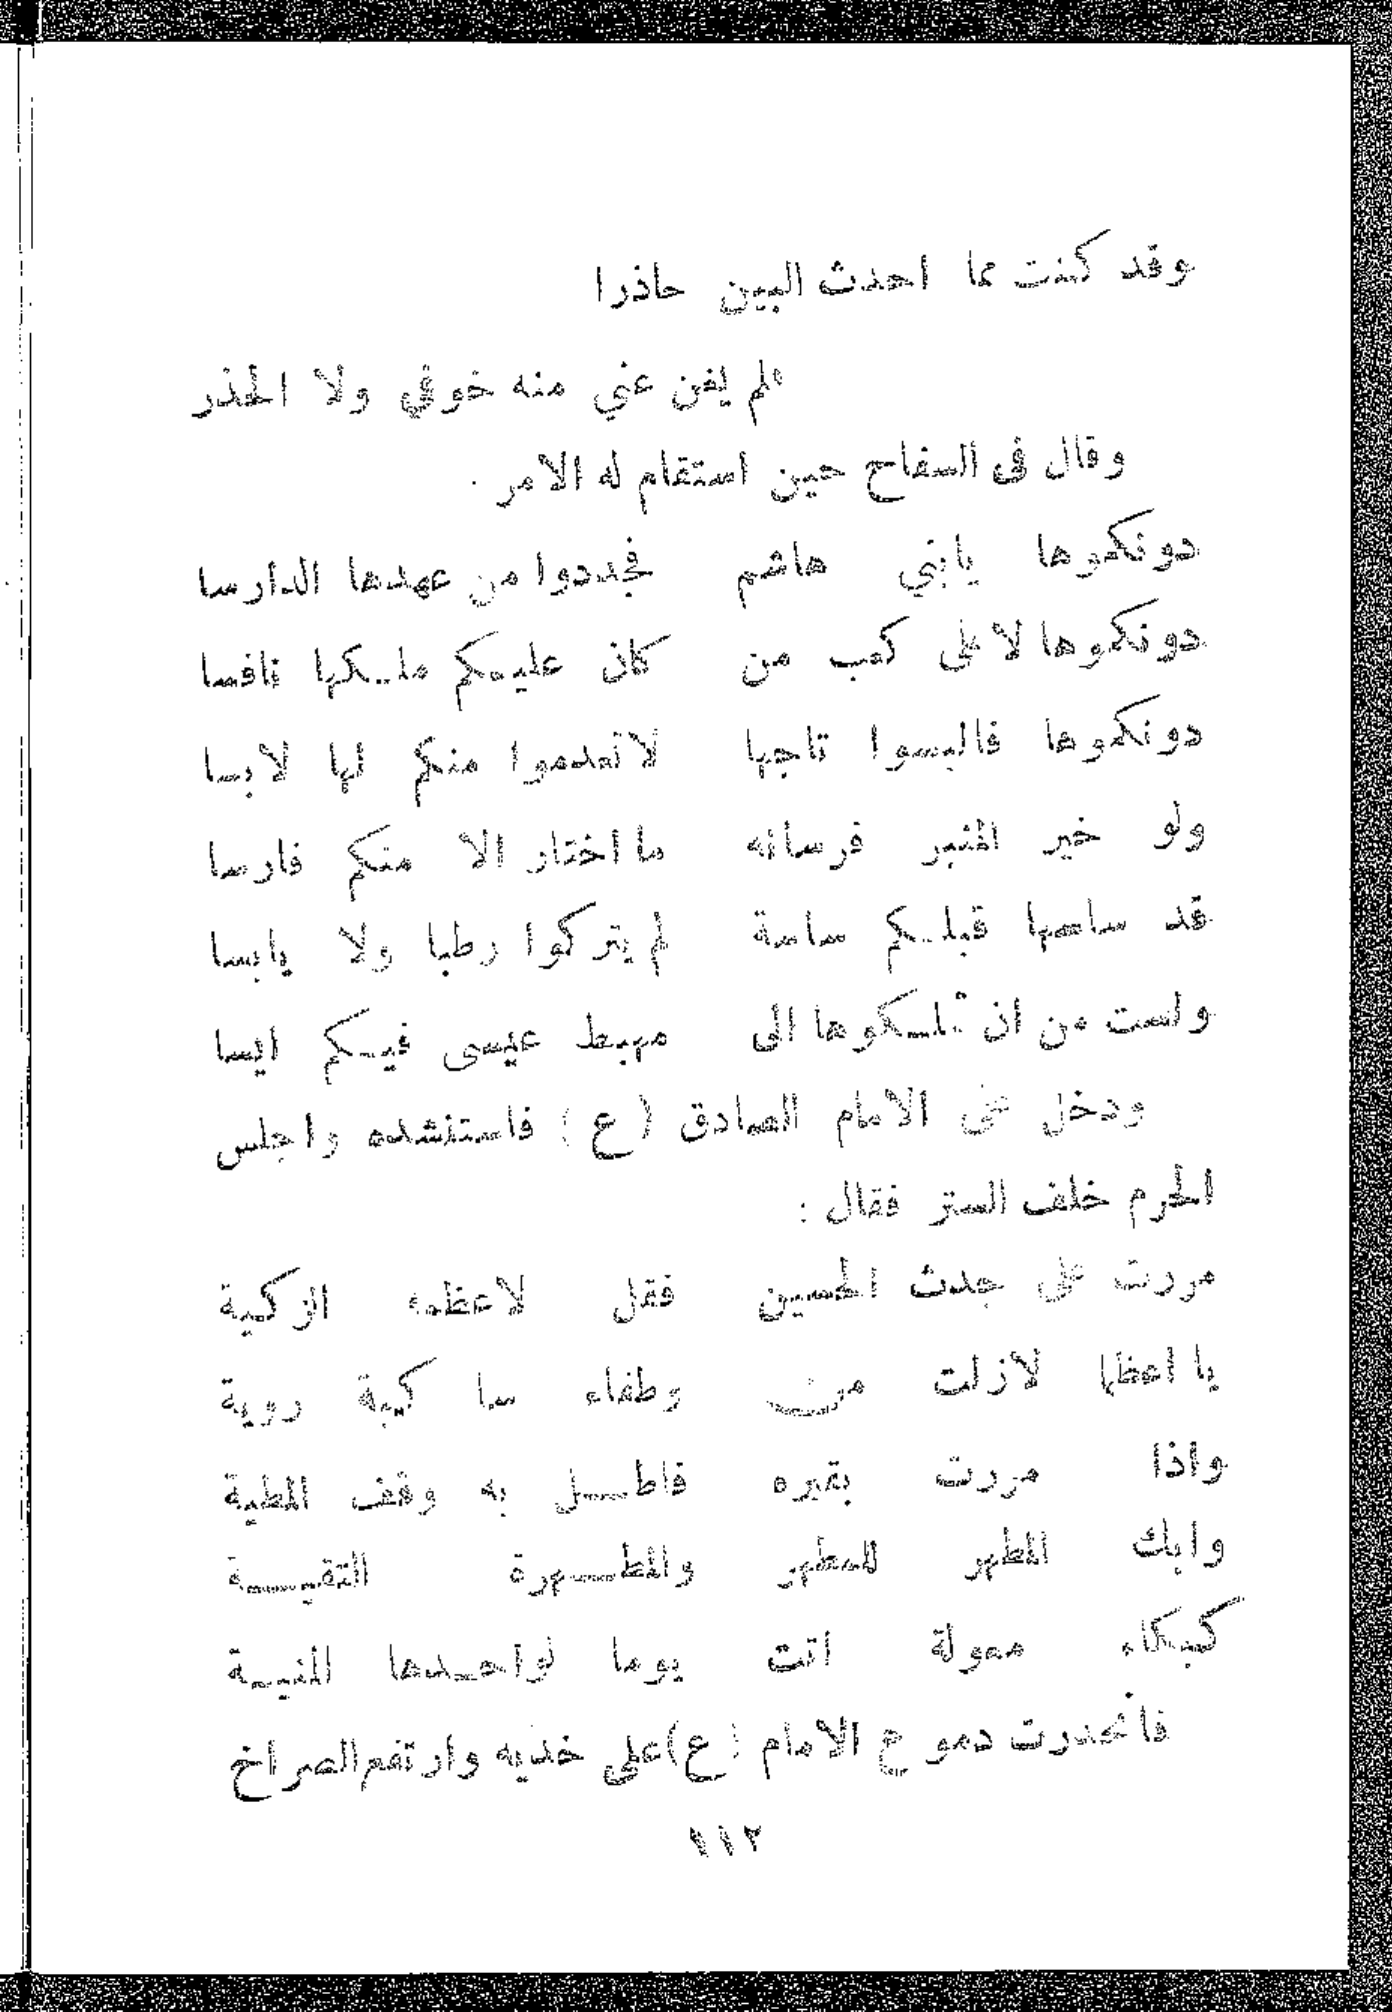 وقد كنت مما احدث البين حاذرا
فلم يغن عني منه خوفي ولا الحذر
وقال في السفاح حين استقام له الامر .
دونكموها يابني هاشم فجددوا من عهدها الدارسا
دونكموها لا على كعب من كان عليكم ملكها نافسا
دونكموها فالبسوا تاجها لا تعدموا منكم لها لابسا
ولو خير المنبر فرسانه ما اختار الا منكم فارسا
قد ساسها قبلكم ساسة لم يتركوا رطبا ولا يابسا
ولست من ان تملكوها الى مهبط عيسى فيكم ايسا
ودخل على الامام الصادق (ع) فاستنشده واجلس
الحرم خلف الستر فقال :
مررت على جدث الحسين فقل لاعظمه الزكية
يا اعظما لازلت من وطفاء ساكبة روية
واذا مررت بقبره فاطل به وقف المطية
وابك المطهر للمطهر والمطهرة التقية
كبكاء معولة اتت يوما لواحدها المنية
فانحدرت دموع الامام (ع) على خديه وارتفع الصراخ
١١٢